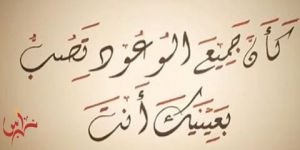 كَأَنَّ جَمِيعَ الوُعُودِ تَصُبُّ
بِعَيْنَيْكَ أَنْتَ